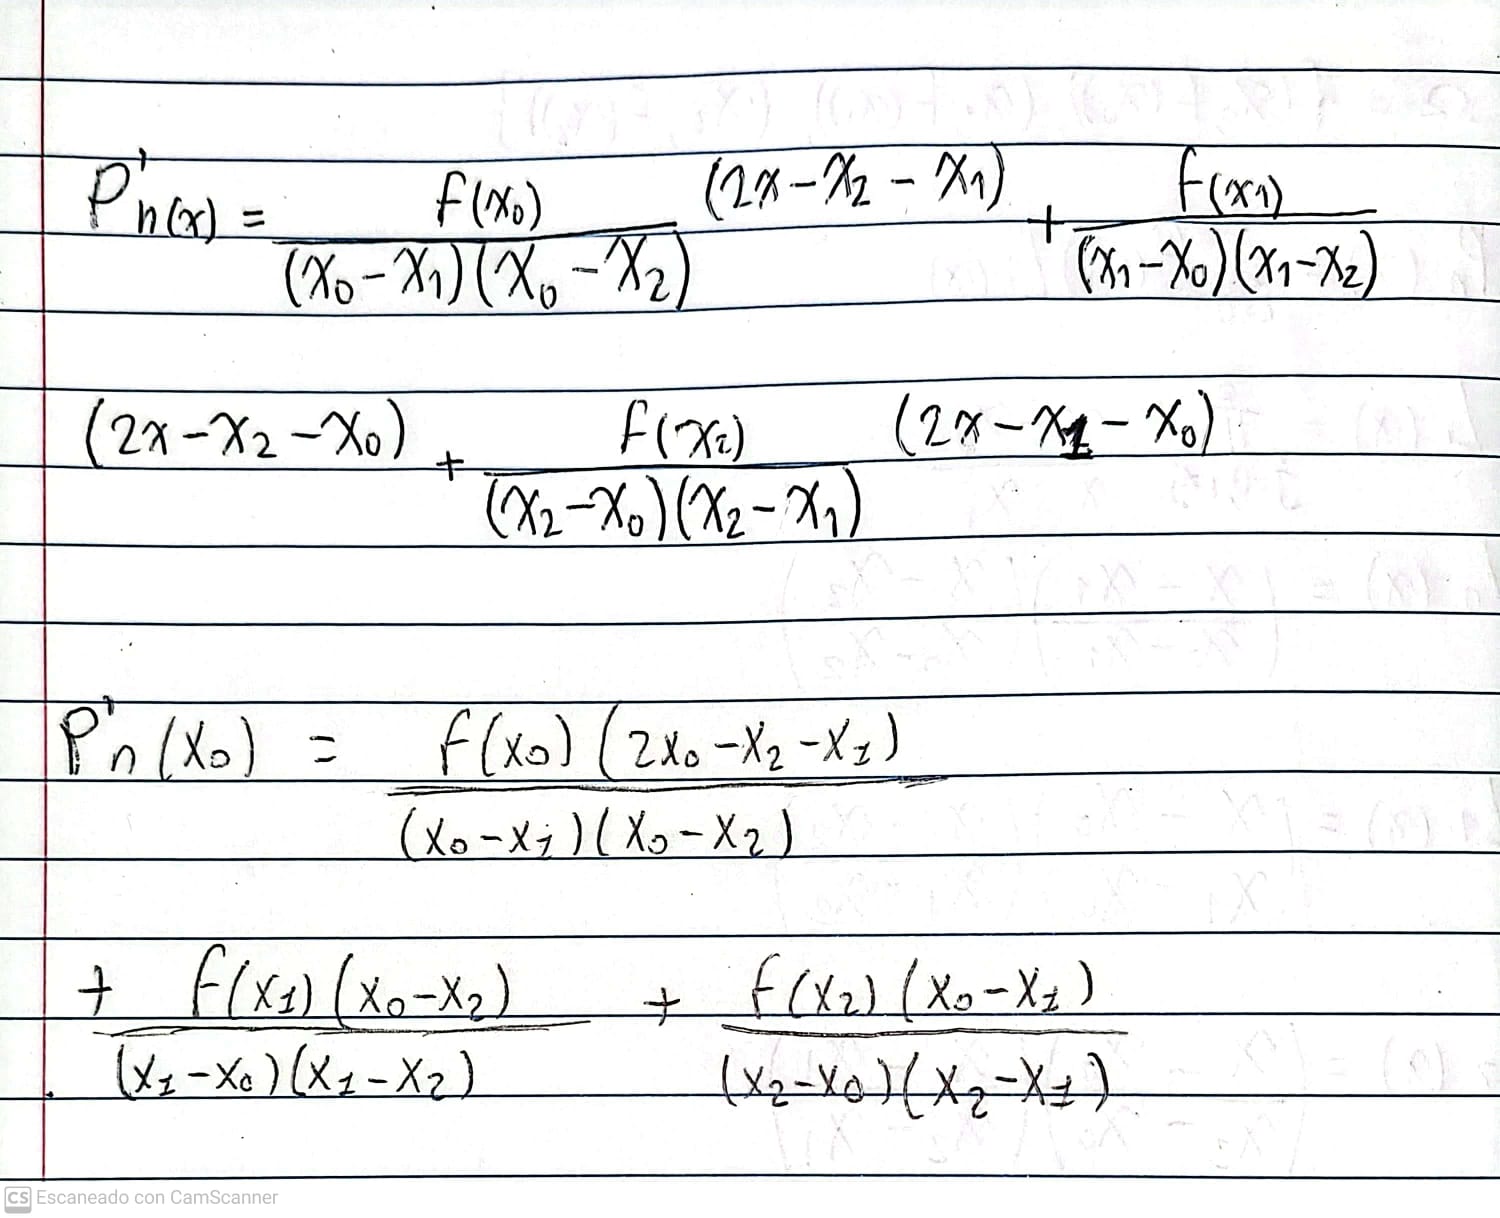 P'n(x) = f(x₀)/((x₀-x₁)(x₀-x₂)) (2x-x₂-x₁) + f(x₁)/((x₁-x₀)(x₁-x₂))
(2x-x₂-x₀) + f(x₂)/((x₂-x₀)(x₂-x₁)) (2x-x₁-x₀)
P'n(x₀) = f(x₀)(2x₀-x₂-x₁)/((x₀-x₁)(x₀-x₂))
+ f(x₁)(x₀-x₂)/((x₁-x₀)(x₁-x₂)) + f(x₂)(x₀-x₁)/((x₂-x₀)(x₂-x₁))
CS Escaneado con CamScanner